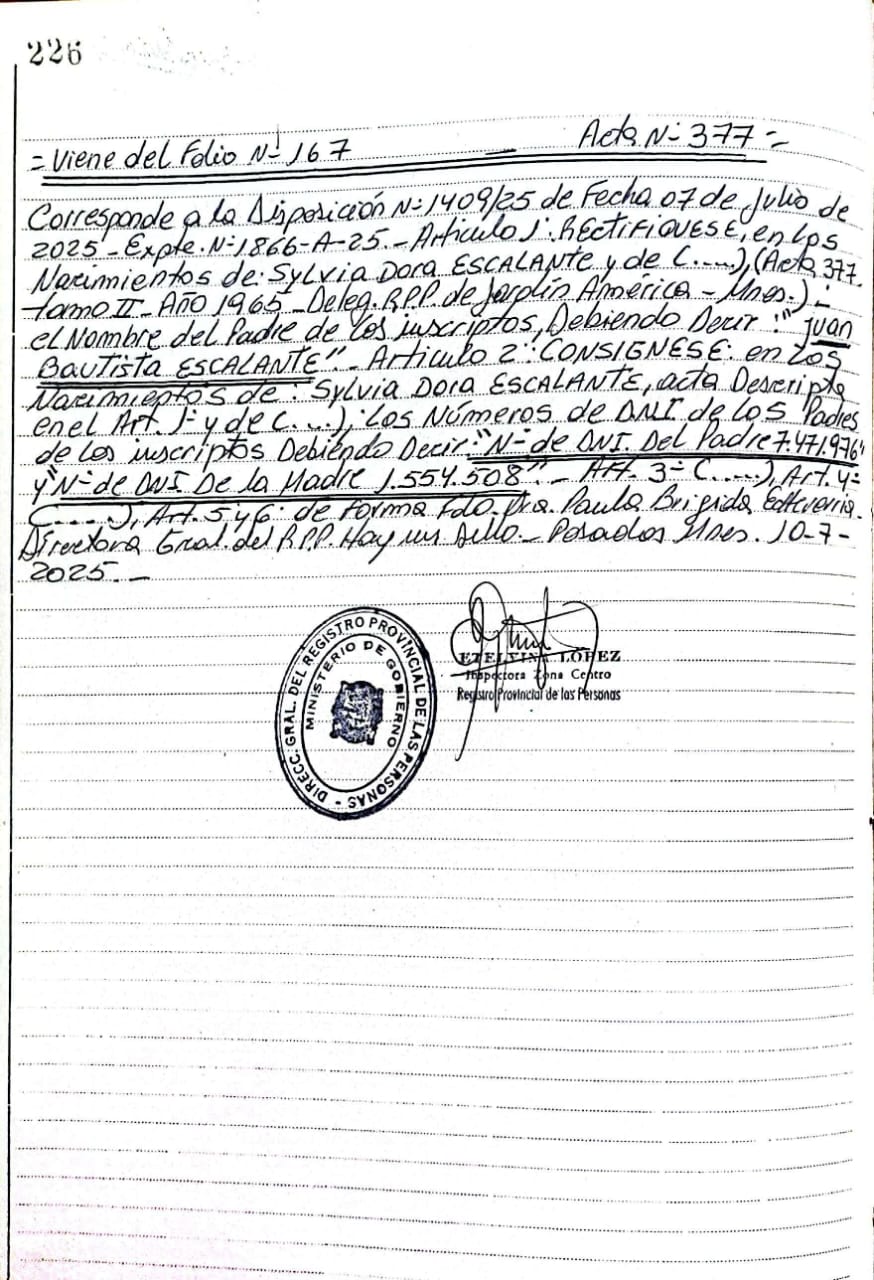 226
= Viene del Folio Nº 167 — Acta Nº 377 =
Corresponde a la Disposición Nº 1409/25 de Fecha 07 de Julio de
2025 - Expte. Nº 1866-A-25. - Articulo 1º: RECTIFIQUESE, en los
Nacimientos de: Sylvia Dora ESCALANTE y de (.....), (Acta 377.
tomo II - AÑO 1965 - Deleg. R.P.P. de Jardín América - Mnes.) :
el Nombre del Padre de los inscriptos, Debiendo Decir: "Juan
Bautista ESCALANTE". - Articulo 2º: CONSIGNESE: en Los
Nacimientos de: Sylvia Dora ESCALANTE, acta Descripta
en el Art. 1º y de (....); Los Números de DNI de Los Padres
de los inscriptos Debiendo Decir: "Nº de DNI. Del Padre 7.471.976"
y "Nº de DNI. De la Madre 1.554.508". - Art. 3º (.....), Art. 4º
(.....), Art. 5 y 6: de forma Fdo. Dra. Paula Brigida Echeverria.
Directora Gral. del R.P.P. Hay un Sello. - Posadas Mnes. 10-7-
2025. -
DIRECC. GRAL. DEL REGISTRO PROVINCIAL DE LAS PERSONAS -
MINISTERIO DE GOBIERNO
ETELVINA LOPEZ
Inspectora Zona Centro
Registro Provincial de las Personas